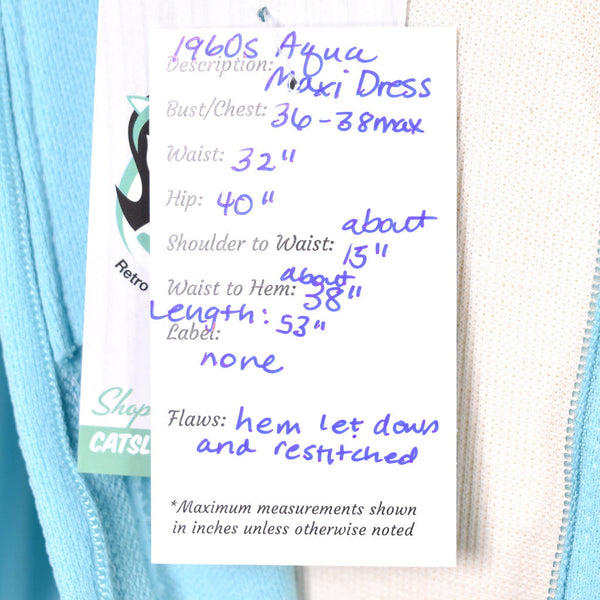 1960s Aqua
Description: Maxi Dress
Bust/Chest: 36-38 max
Waist: 32"
Hip: 40"
Shoulder to Waist: about 15"
Waist to Hem: about 38"
Length: 53"
Label:
none
Flaws: hem let down
and restitched
*Maximum measurements shown
in inches unless otherwise noted
Retro
Shop
CATSL